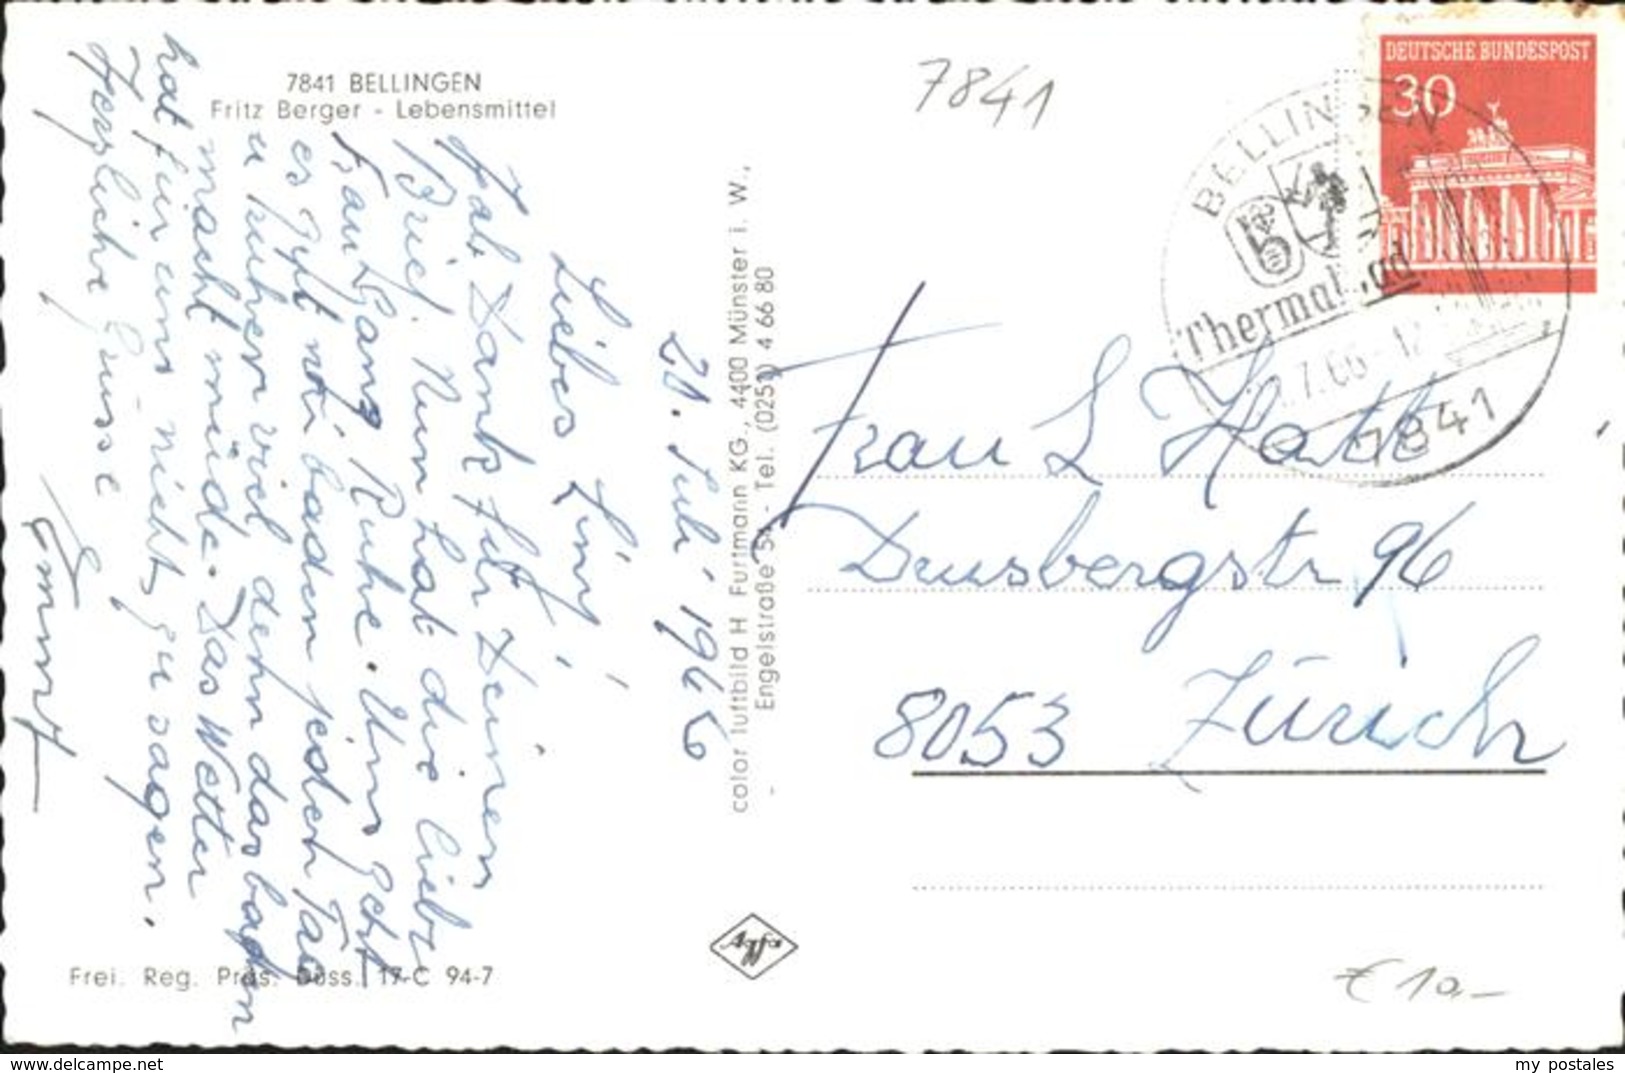 7841 BELLINGEN
Fritz Berger - Lebensmittel
28. Juli 1966
Liebes Liny!
Hab Dank für Deinen
Brief. Nun hat die liebe
Frau Ganz Ruhe. Uns geht
es gut wir baden jeden Tag
u ruhen viel denn das baden
macht müde. Das Wetter
hat für uns nichts zu sagen.
Herzliche Grüsse
Frei. Reg. Präs. Düss. 17-C 94-7
color luftbild H Furtmann KG., 4400 Münster i. W.,
- Engelstraße 5 - Tel. (0251) 4 66 80
Agfa
7841
DEUTSCHE BUNDESPOST
30
BELLINGEN
Thermalbad
.7.66-12
7841
Frau L Hatt
Drusbergstr 96
8053 Zürich
€ 10,-
my postales
delcampe.net